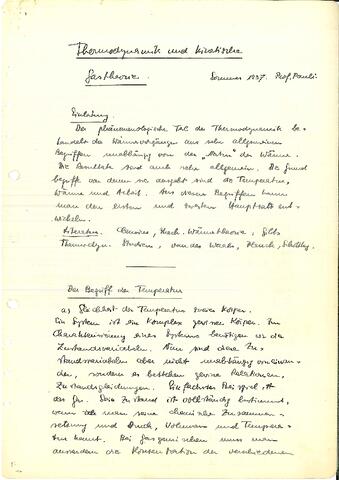 Thermodynamik und Kinetische
Gastheorie. Sommer 1937. Prof. Pauli
Einleitung
Der phänomenologische Teil der Thermodynamik be-
handelt die Wärmevorgänge aus sehr allgemeinen
Begriffen unabhängig von der „Natur" der Wärme.
Die Resultate sind auch sehr allgemein. Die Grund
begriffe von denen sie ausgeht sind die Temperatur,
Wärme und Arbeit. Aus diesen Begriffen kann
man den ersten und zweiten Hauptsatz ent-
wickeln.
Literatur. Mach. Wärmetheorie, Gibbs
Thermodyn. Studien, van der Waals, Planck,
Der Begriff der Temperatur
a) Gleichheit der Temperatur zweier Körper.
Ein System ist ein Komplex gewisser Körper. Zur
Charakterisierung eines Systems benötigen wir die
Zustandsvariabeln. Nun sind diese Zu-
standsvariabeln aber nicht unabhängig voneinan-
der, sondern es bestehen gewisse Relationen,
Zustandsgleichungen. Einfachstes Beispiel ist
das Gas. Sein Zustand ist vollständig bestimmt,
wenn man seine chemische Zusammen-
setzung und Druck, Volumen und Tempera-
tur kennt. Bei Gasgemischen muss man
ausserdem die Konzentration der verschiedenen